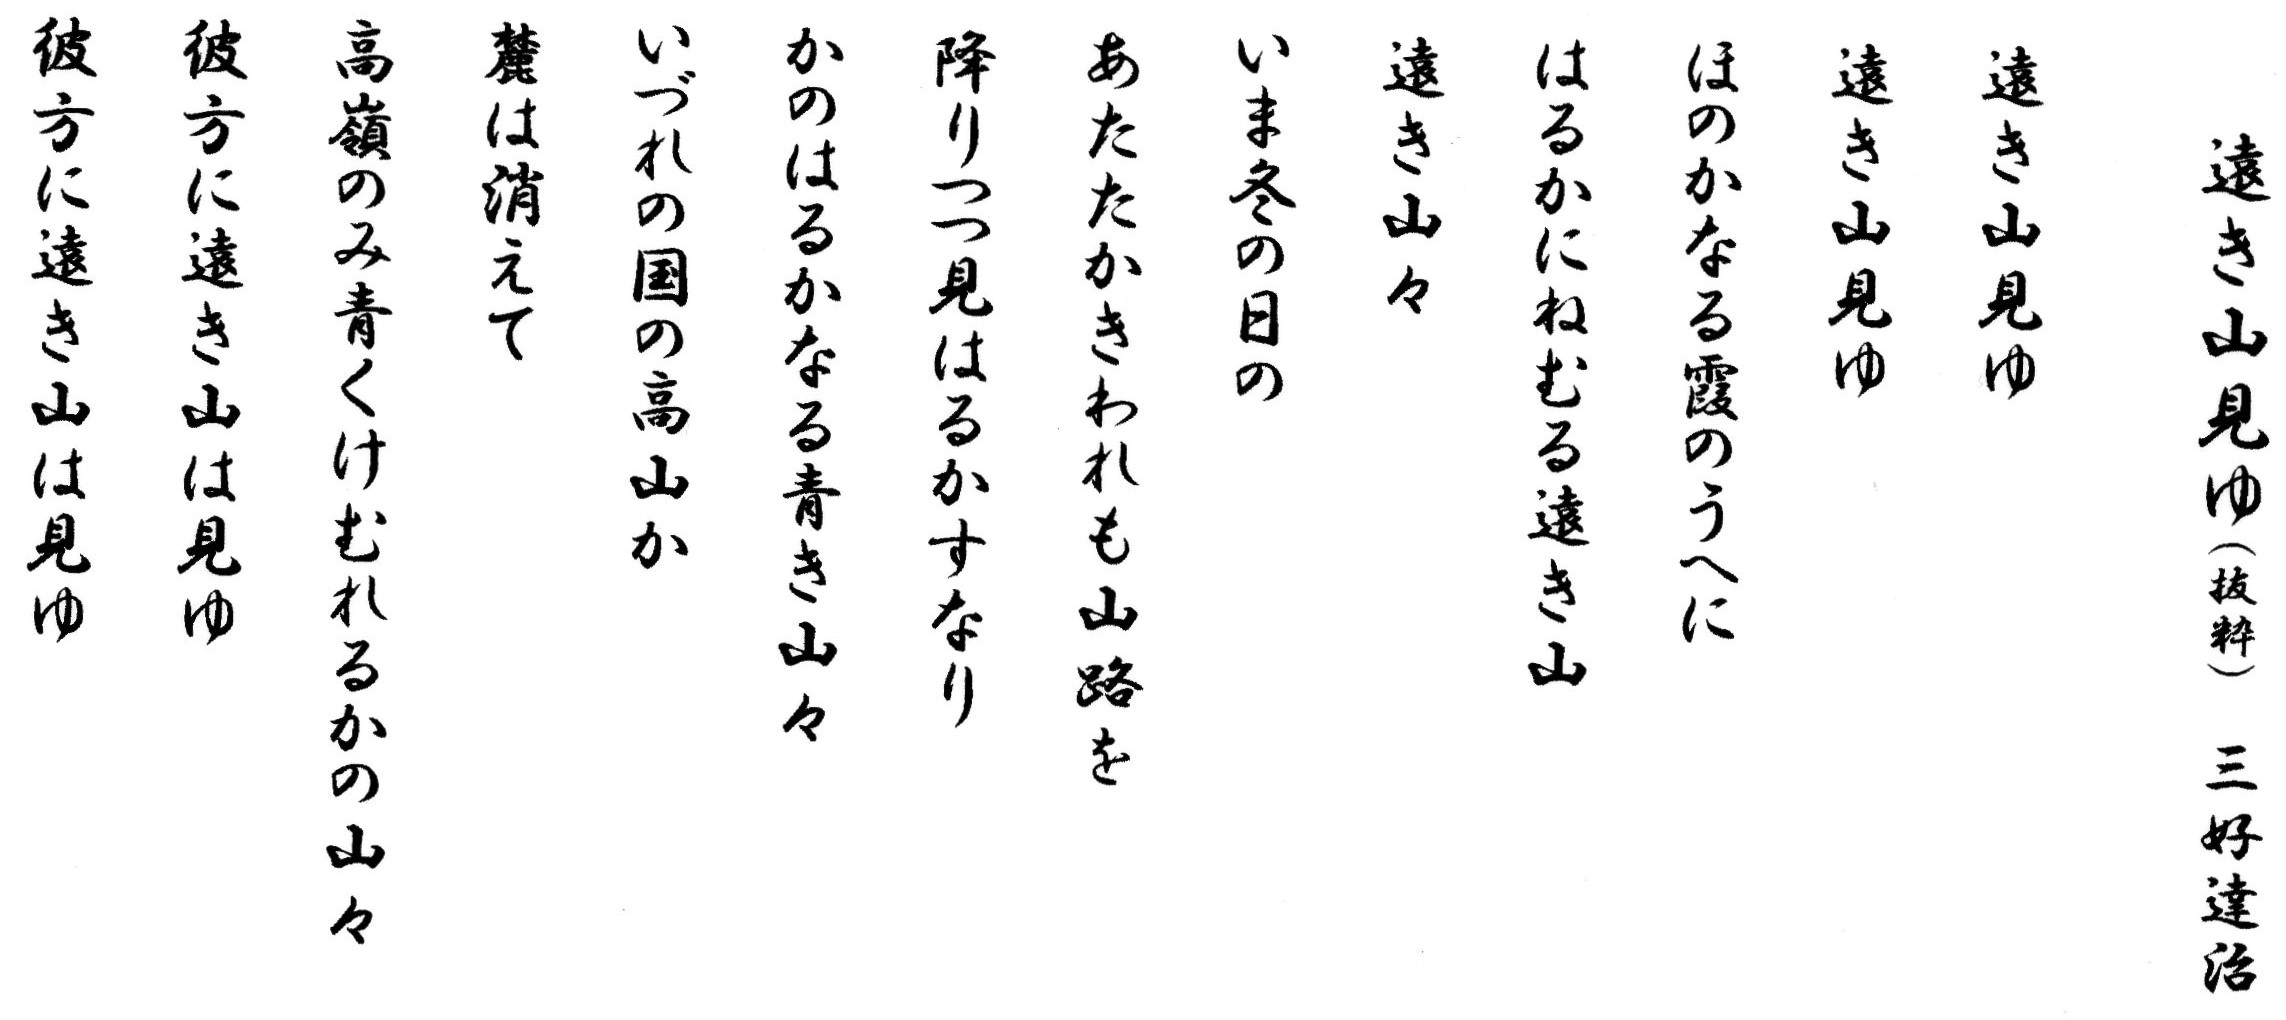 遠き山見ゆ（抜粋）　三好達治
遠き山見ゆ
遠き山見ゆ
ほのかなる霞のうへに
はるかにねむる遠き山
遠き山々
いま冬の日の
あたたかきわれも山路を
降りつつ見はるかすなり
かのはるかなる青き山々
いづれの国の高山か
麓は消えて
高嶺のみ青くけむれるかの山々
彼方に遠き山は見ゆ
彼方に遠き山は見ゆ